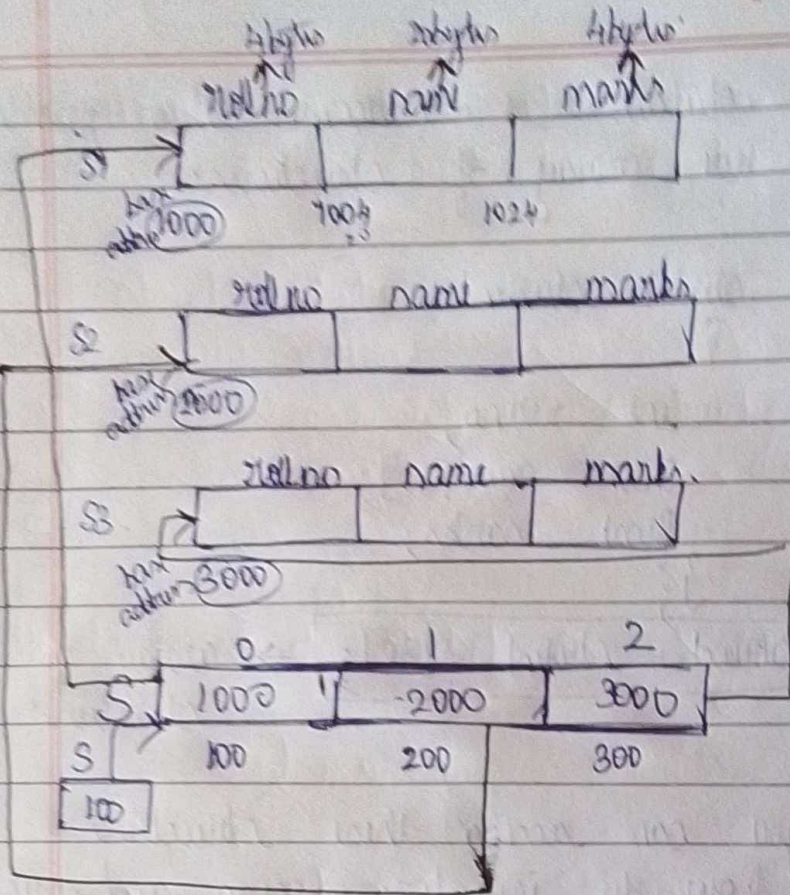 4bytes 20bytes 4bytes
roll no name marks
S1
base address 1000 1004 1024
roll no name marks
S2
base address 2000
roll no name marks.
S3
base address 3000
0 1 2
S 1000 2000 3000
S 100 200 300
100